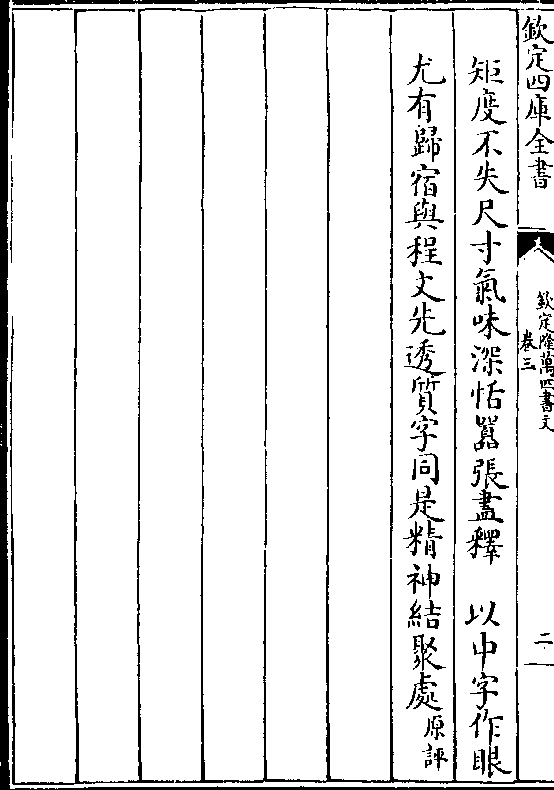 欽定四庫全書
欽定隆萬四書文
卷三
二
矩度不失尺寸氣味深恬嚣張盡釋　以中字作眼
尤有歸宿與程文先透質字同是精神結聚處原評